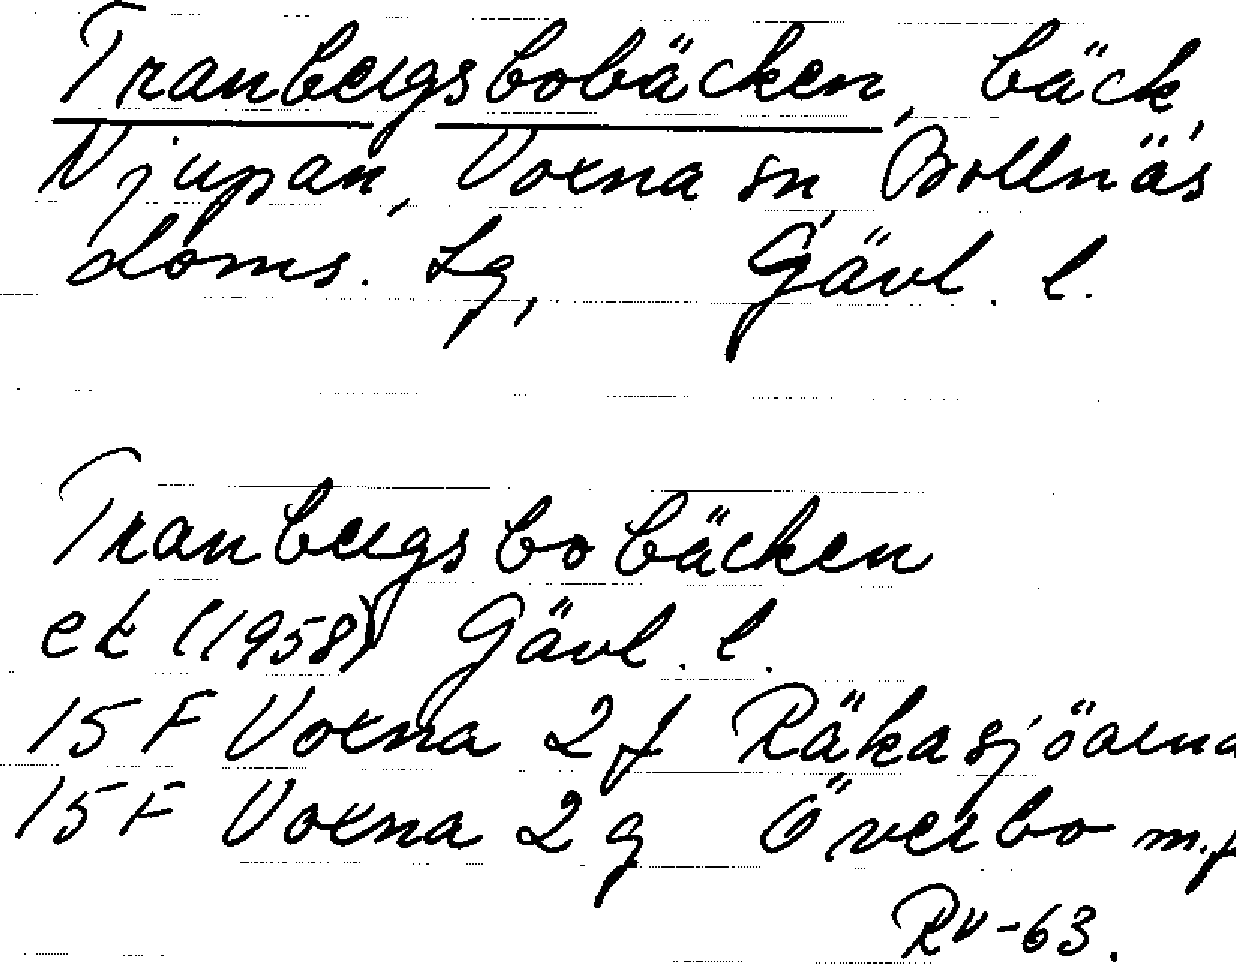 Tranbergsbobäcken, bäck,
Njupån, Voxna sn, Bollnäs
doms. lg, Gävl. l.
Tranbergsbobäcken
ek (1958) Gävl. l.
15 F Voxna 2 f Räkasjöarna
15 F Voxna 2 g Överbo m.fl
RV-63.